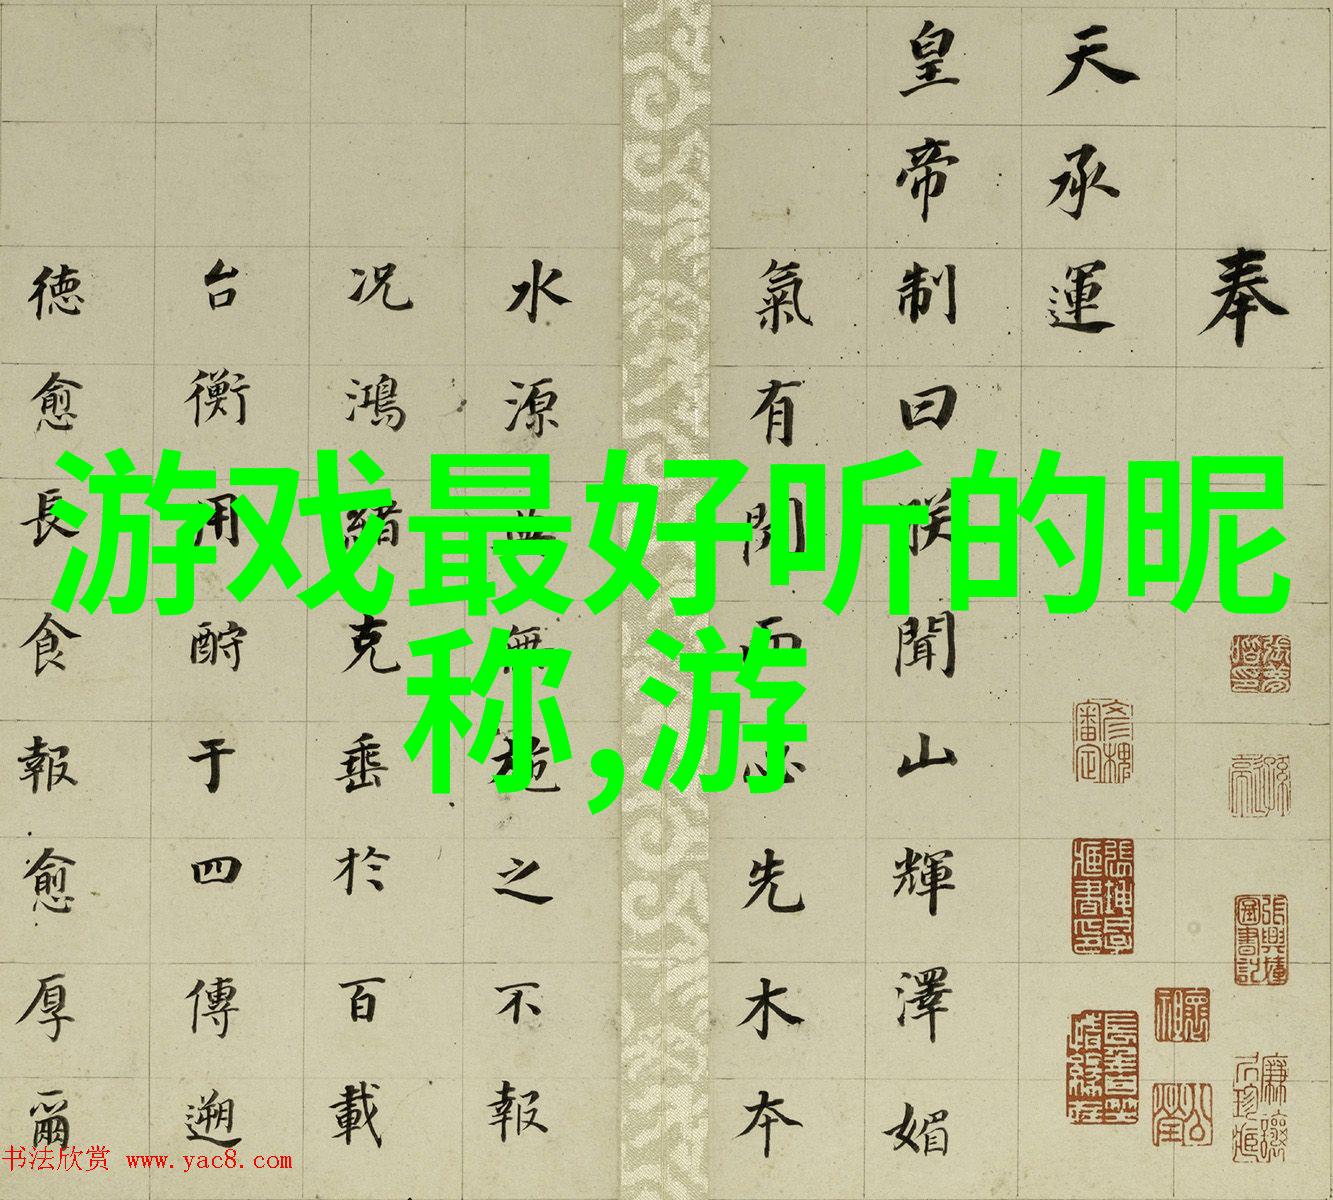 奉
天承運
皇帝制曰朕聞山輝澤媚
氣有開而必先木本
水源無施之不報
况鴻緒克垂於百載
台衡用酧于四傳遡
德愈長食報愈厚爾
游戏最好听的昵
称,游
书法欣赏 www.yac8.com